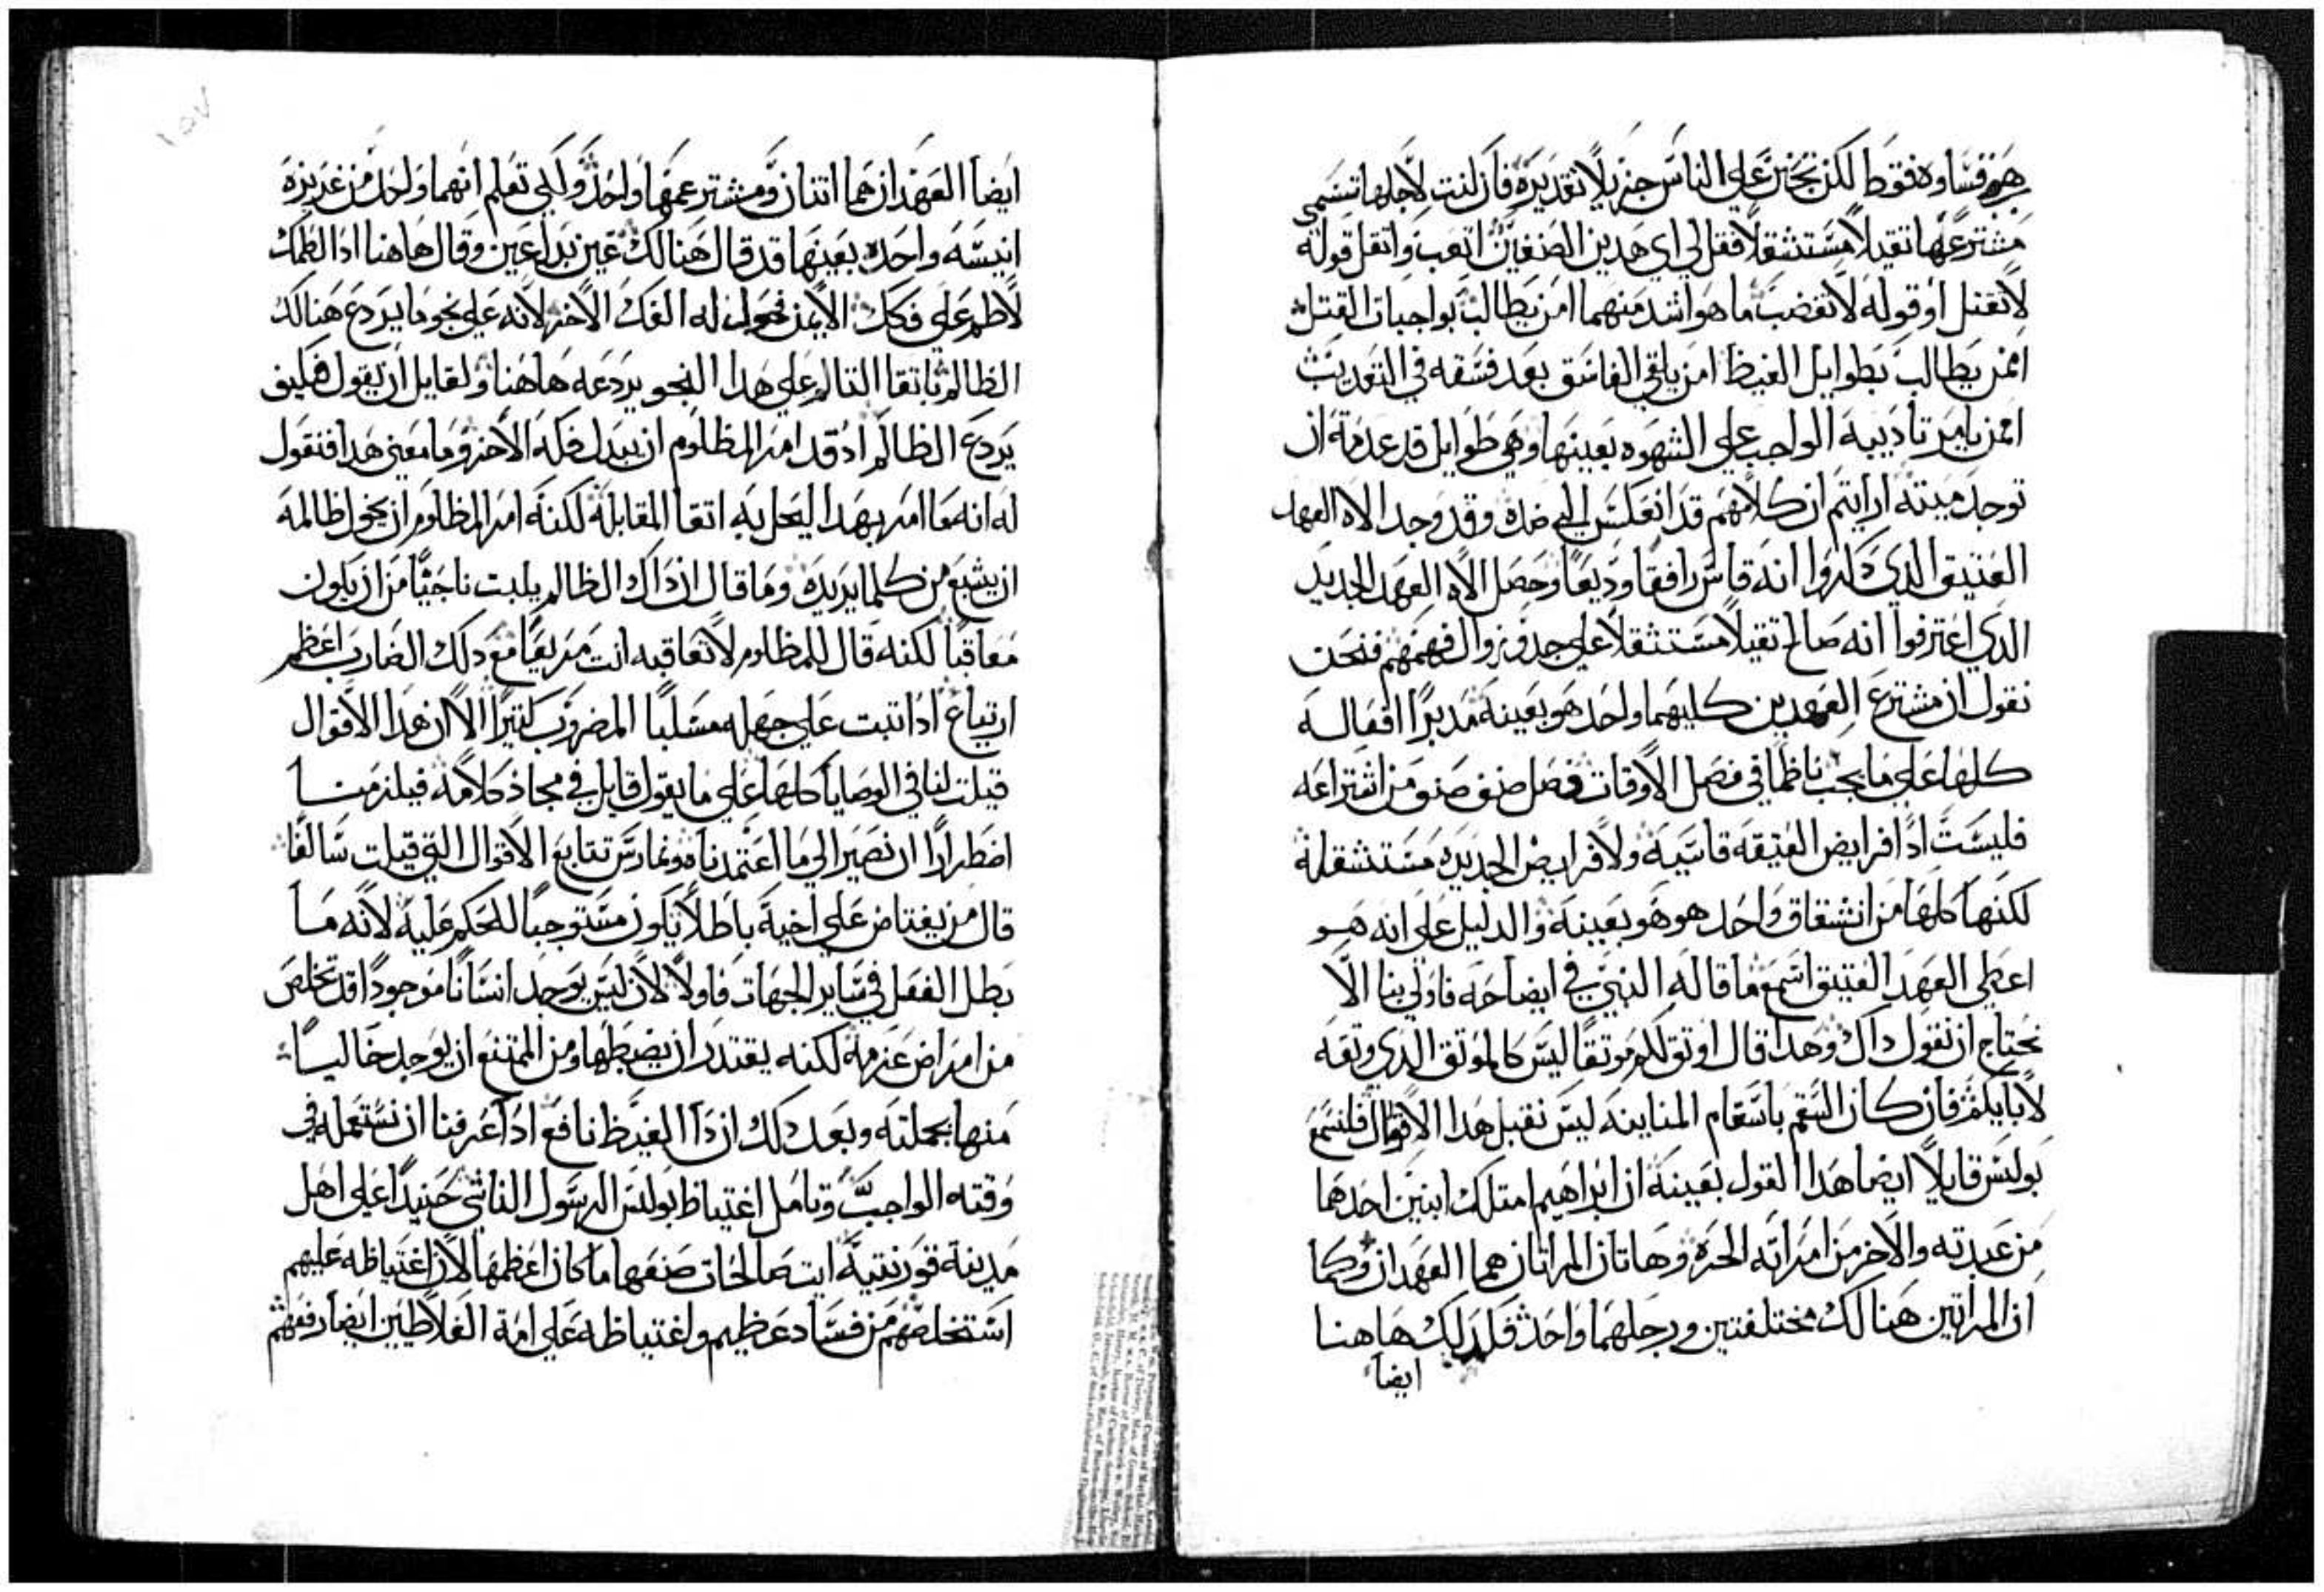 هم قساوه فقط لكن تحنن على الناس جزيلا تقديره فان كنت لاجلها تسمى
مشترعها تقيلا مستثقلا فقل لي اي هدين الصنفين اتعب واتقل قوله
لا تقتل او قوله لا تغضب ما هو اشد منهما امن يطالب بواجبات القتل
امن يطالب بطوايل الغيظ امن يلقي الفاسق بعد فسقه في التعديب
امن يامر تاديبه الواجب على الشهوه بعينها وهي طوايل قد عدمة ان
توجد ميته ارايتم ان كلامهم قد انعكس الي ضده وقد وجد الاه العهد
العتيق الدي دكروا انه قاس رافقا وديعا وحصل الاه العهد الجديد
الدي اعترفوا انه صالح تقيلا مستثقلا على حد وزوال فهمهم فنحن
نقول ان مشترع العهدين كليهما واحد هو بعينه مدبرا افعاله
كلها على ما يجب ناظما في فصل الاوقات فصل صنف صنف من اشتراعه
فليست ادا فرايض العتيقه قاسيه ولا فرايض الجديده مستثقله
لكنها كلها من انشقاق واحد هو هو بعينه والدليل على انه هو
اعطى العهد العتيق اسمع ما قاله النبي في ايضاحه فاولي بنا الا
نحتاج ان نقول داك وهدا قال اوتق لكم موتقا ليس كالموتق الدي وتقه
لابايكم فان كان السقم باسقام المناينه ليس نقبل هدا الاقوال فلنسمع
بولس قايلا ايضا هدا القول بعينه ان ابراهيم امتلك ابنين احدهما
من عبدته والاخر من امراته الحره وهاتان المراتان هما العهدان وكما
ان المراتين هنالك مختلفتين ورجلهما واحد فلدلك هاهنا
ايضا
١٥٧
ايضا العهدان هما اتنان ومشترعهما واحد ولكي تعلم انهما واحد من غريزه
انيسه واحده بعينها قد قال هنالك عين بدل عين وقال هاهنا ادا لطمك
لاطم على فكك الايمن فحول له الفك الاخر لانه على نحو ما يردع هنالك
الظالم باتقا التالم على هدا النحو يردعه هاهنا ولقايل ان يقول فكيف
يردع الظالم اد قد امر المظلوم ان يبدل فكه الاخر وما معنى هدا فنقول
له انه ما امر بهدا ليحل به اتقا المقابله لكنه امر المظلوم ان يخول ظالمه
ان يشبع من كلما يريده وما قال ان داك الظالم يلبت ناجيا من ان يكون
معاقبا لكنه قال للمظلوم لا تعاقبه انت مريعا مع دلك الضارب اعظم
ارتياع ادا تبت على جهله مسلبا المضروب كتيرا الا ان هدا الاقوال
قيلت لنا في الوصايا كلها على ما يقول قايل في مجاز كلامه فيلزمنا
اضطرارا ان نصير الي ما اعتمدناه ونمارس تتابع الاقوال التي قيلت سالفا
قال من يغتاض على اخيه باطلا يكون مستوجبا للحكم عليه لانه ما
بطل الفعل في ساير الجهات فاولا لان ليس يوجد انسانا موجودا قد تخلص
من امراض عزمه لكنه يقتدر ان يضبطها ومن الممتنع ان يوجد خاليا
منها بجملته وبعد دلك ان دا الغيظ نافع ادا عرفنا ان نستعمله في
وقته الواجب وتامل اغتياظ بولس الرسول الناشي حنيدا على اهل
مدينة قورنتية ايت صالحات صنفها ما كان اعظمها لان اغتياظه عليهم
استخلصهم من فساد عظيم واغتياظه على امة الغلاطيين ايضا رفعهم